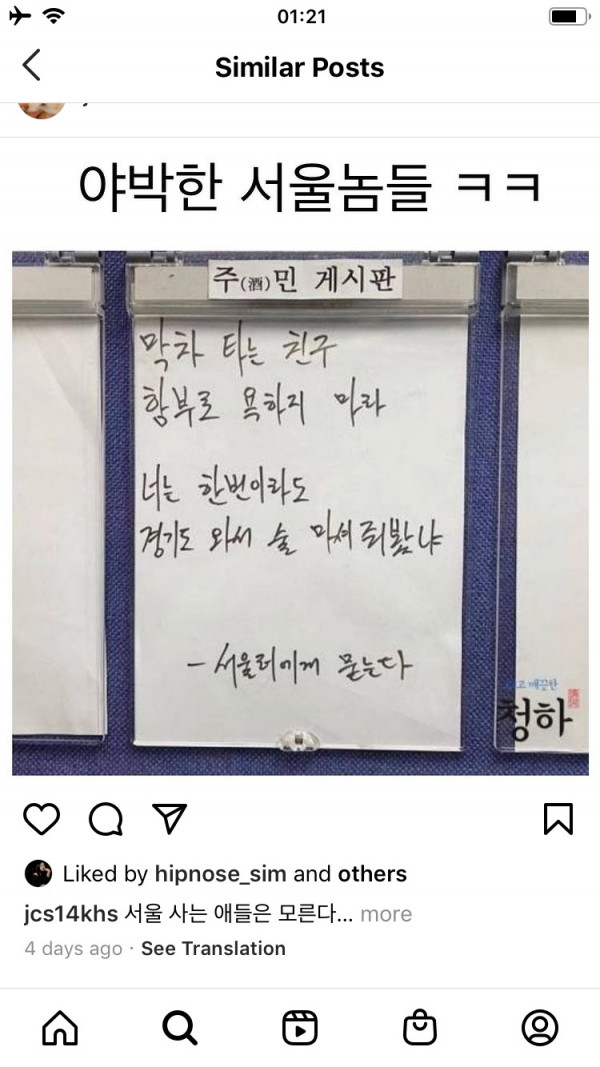 01:21
Similar Posts
야박한 서울놈들 ㅋㅋ
주(酒)민 게시판
막차 타는 친구
함부로 욕하지 마라
너는 한번이라도
경기도 와서 술 마셔줘봤냐
-서울러에게 묻는다
고 깨끗한
청하
Liked by hipnose_sim and others
jcs14khs 서울 사는 애들은 모른다... more
4 days ago · See Translation